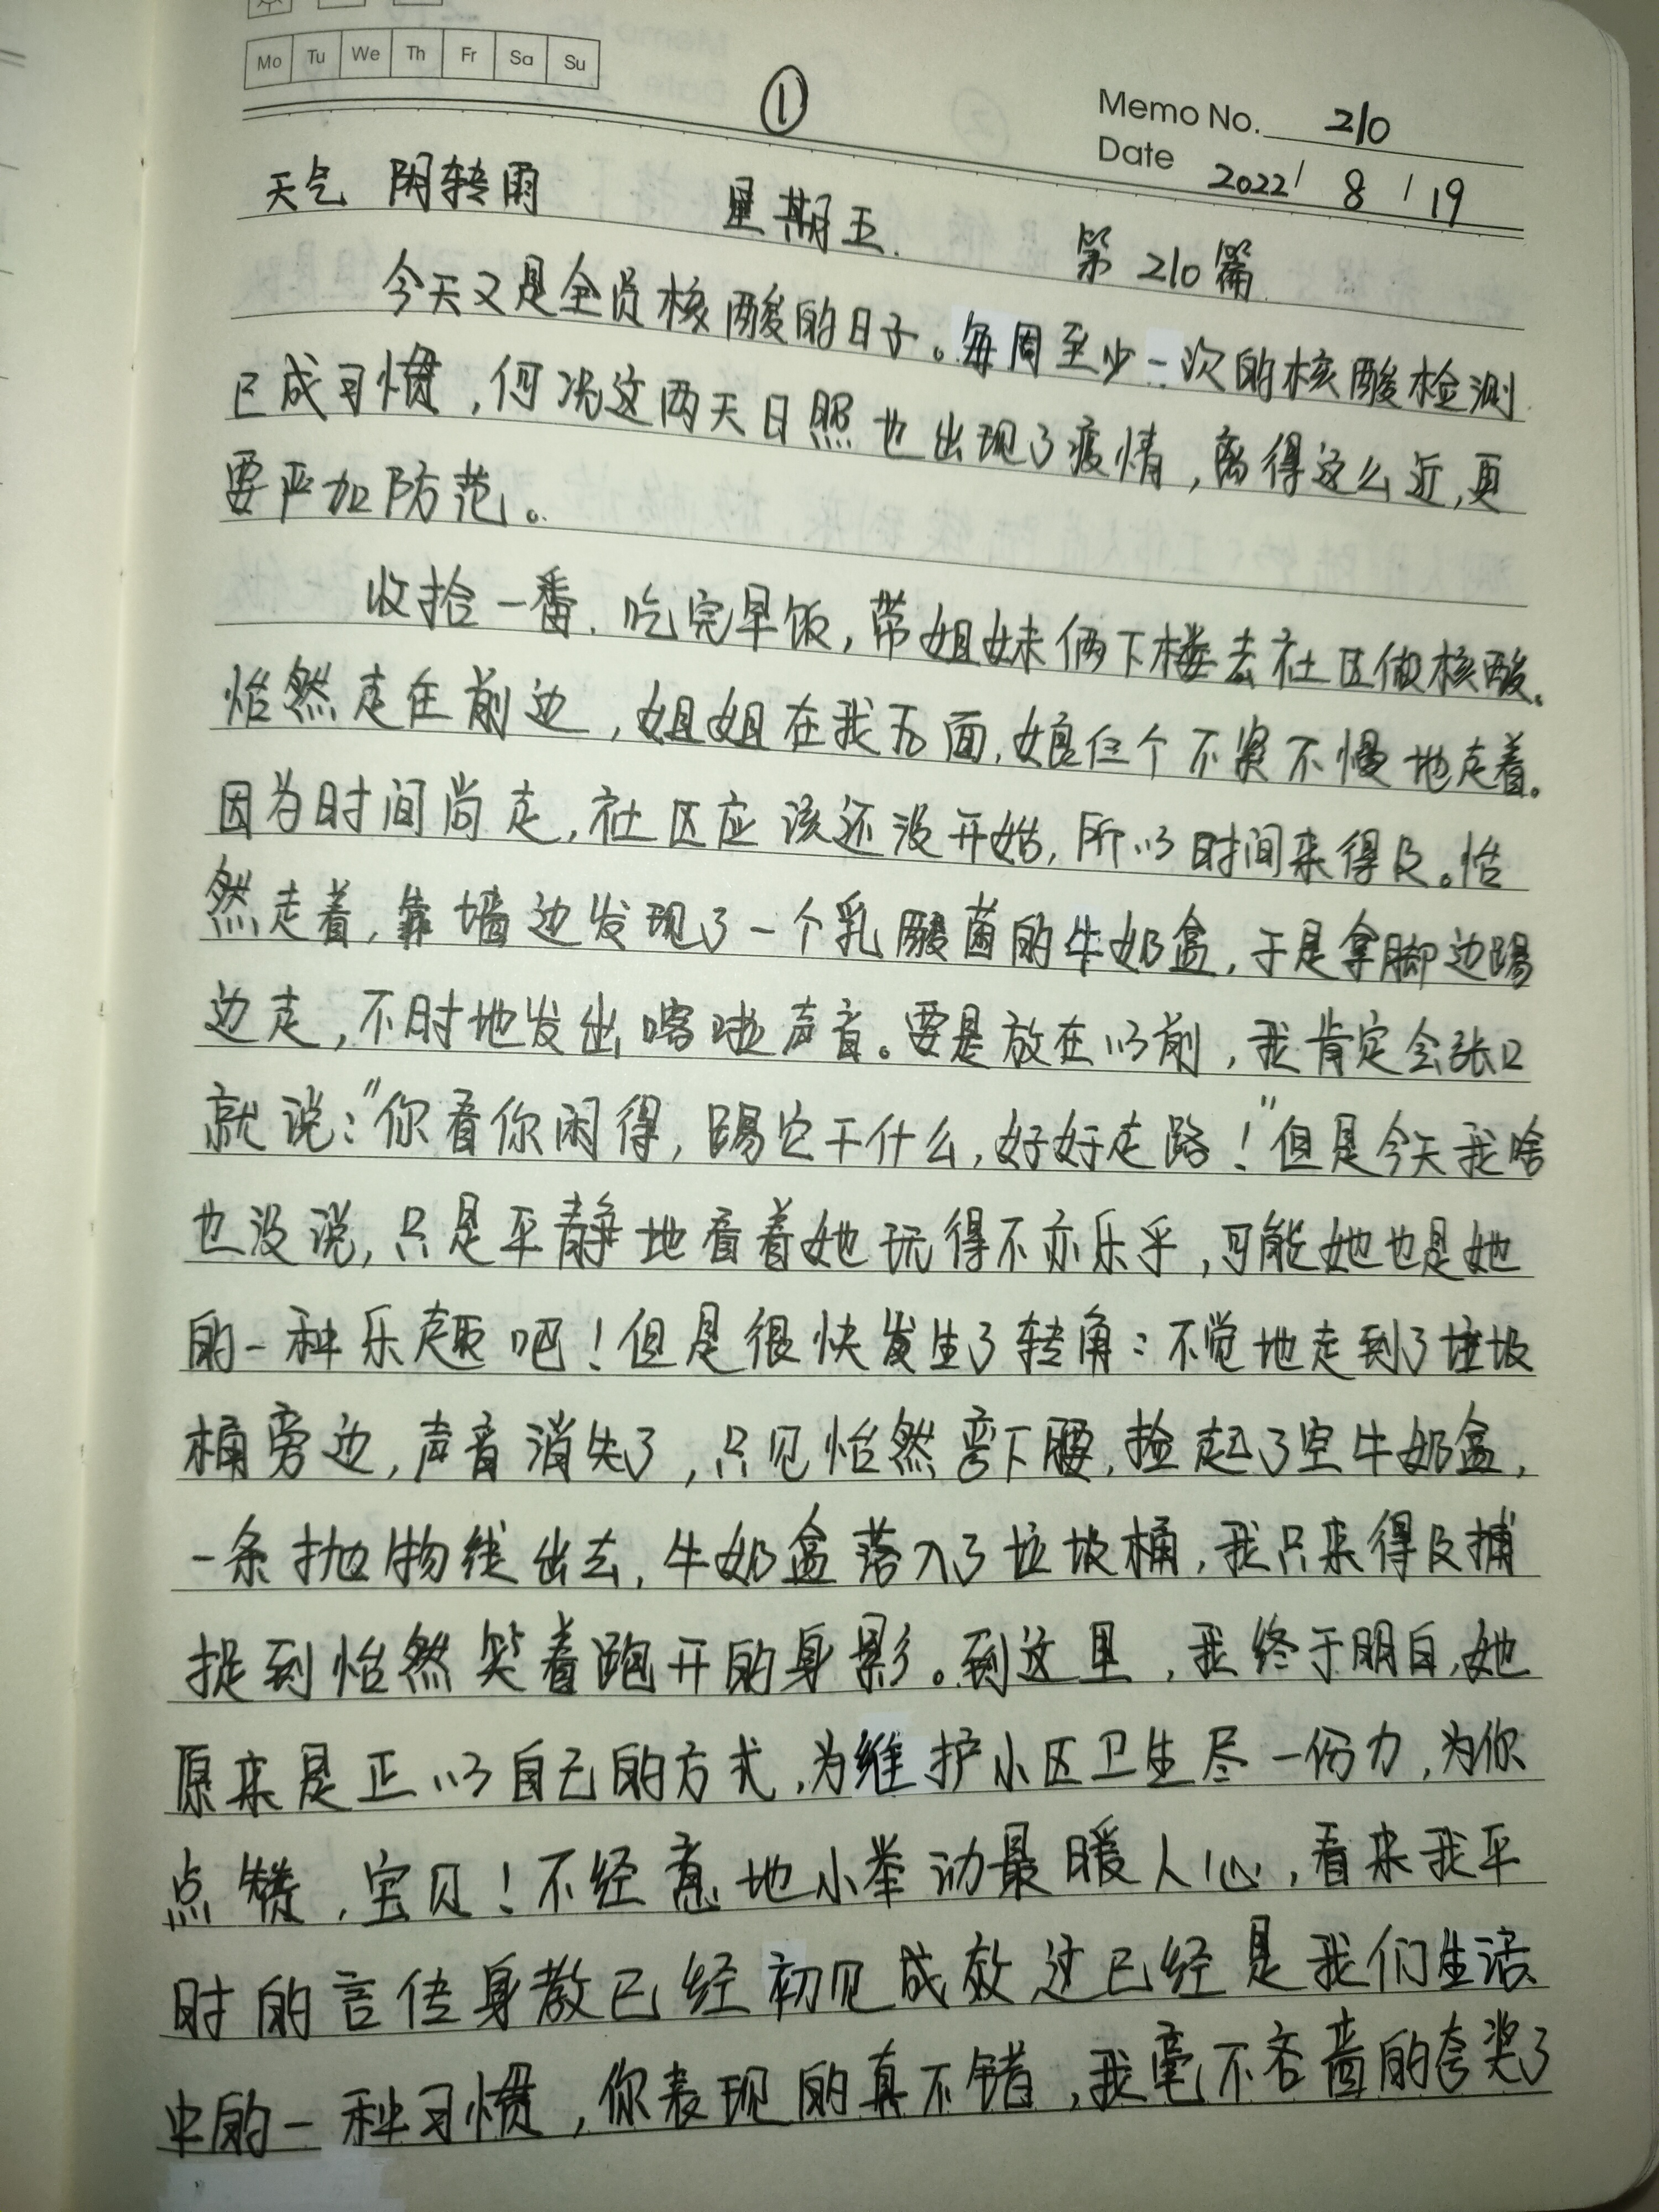 Mo Tu We Th Fr Sa Su
①
Memo No. 210
Date 2022 / 8 / 19
天气 阴转雨 星期五. 第210篇
今天又是全员核酸的日子。每周至少一次的核酸检测
已成习惯，何况这两天日照也出现了疫情，离得这么近，更
要严加防范。
收拾一番，吃完早饭，带姐妹俩下楼去社区做核酸。
怡然走在前边，姐姐在我后面，娘仨个不紧不慢地走着。
因为时间尚走，社区应该还没开始，所以时间来得及。怡
然走着，靠墙边发现了一个乳酸菌的牛奶盒，于是拿脚边踢
边走，不时地发出喀啦声音。要是放在以前，我肯定会张口
就说：“你看你闲得，踢它干什么，好好走路！”但是今天我啥
也没说，只是平静地看着她玩得不亦乐乎，可能她也是她
的一种乐趣吧！但是很快发生了转角：不觉地走到了垃圾
桶旁边，声音消失了，只见怡然弯下腰，捡起了空牛奶盒，
一条抛物线出去，牛奶盒落入了垃圾桶，我只来得及捕
捉到怡然笑着跑开的身影。到这里，我终于明白，她
原来是正以自己的方式，为维护小区卫生尽一份力，为你
点赞，宝贝！不经意地小举动最暖人心，看来我平
时的言传身教已经初见成效这已经是我们生活
中的一种习惯，你表现的真不错，我毫不吝啬的夸奖了